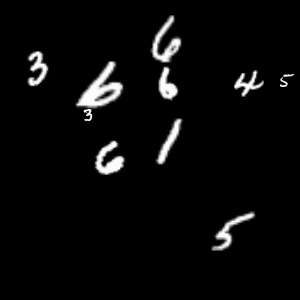 6
3 6 6 4 5
3
6 1
5